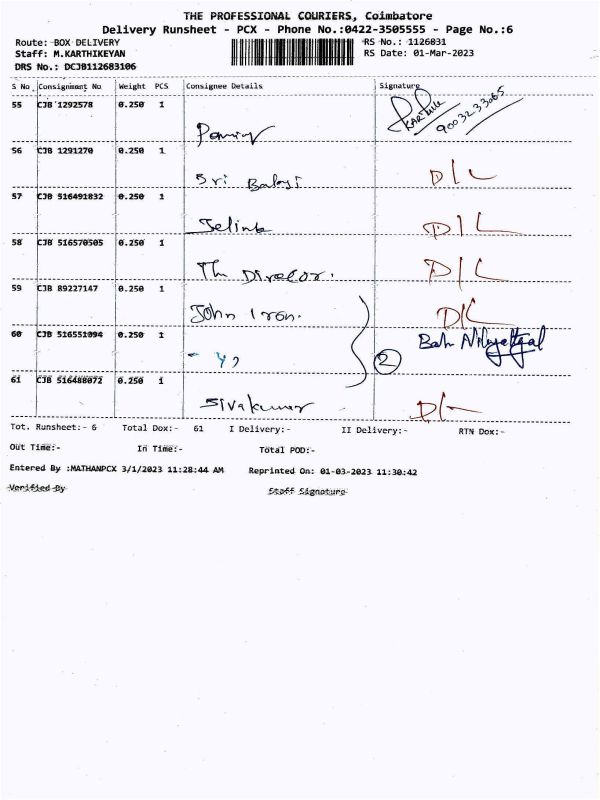 THE PROFESSIONAL COURIERS, Coimbatore
Delivery Runsheet - PCX - Phone No.:0422-3505555 - Page No.:6
Route: BOX DELIVERY RS No.: 1126831
Staff: M.KARTHIKEYAN RS Date: 01-Mar-2023
DRS No.: DCJB112683106
S No Consignment No Weight PCS Consignee Details Signature
55 CJB 1292578 0.250 1 9003233065
56 CJB 1291270 0.250 1 Sri Balaji D/C
57 CJB 516491832 0.250 1 Jelink D/C
58 CJB 516570505 0.250 1 The Director. D/C
59 CJB 89227147 0.250 1 John Iron. D/C
60 CJB 516551094 0.250 1 2
61 CJB 516488072 0.250 1 Sivakumar
Tot. Runsheet:- 6 Total Dox:- 61 I Delivery:- II Delivery:- RTN Dox:-
Out Time:- In Time:- Total POD:-
Entered By :MATHANPCX 3/1/2023 11:28:44 AM Reprinted On: 01-03-2023 11:30:42
Verified By Staff Signature